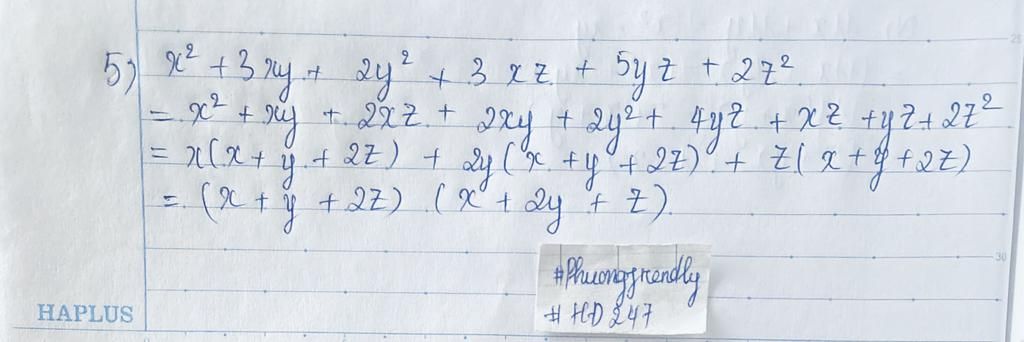 5) x² + 3xy + 2y² + 3xz + 5yz + 2z²
= x² + xy + 2xz + 2xy + 2y² + 4yz + xz + yz + 2z²
= x(x + y + 2z) + 2y(x + y + 2z) + z(x + y + 2z)
= (x + y + 2z) (x + 2y + z)
25
#Phuongfriendly
#HD247
30
HAPLUS